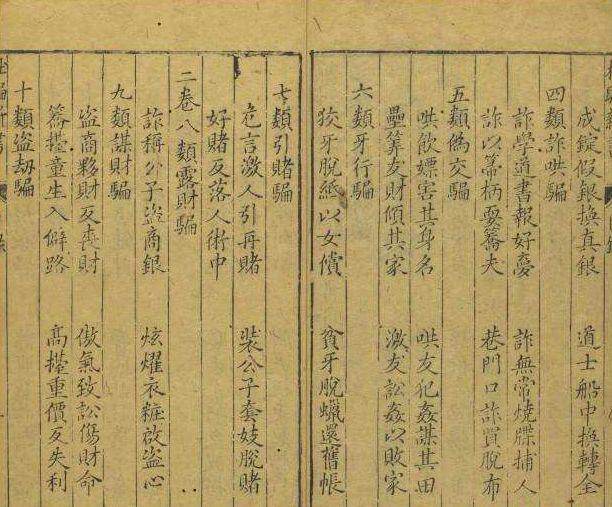 成錠假銀換真銀 道士船中換轉金
四類詐哄騙
詐學道書報好夢 詐無常燒牒捕人
詐以帚柄耍轎夫 巷門口詐買脫布
五類偽交騙
哄飲嫖害其身名 哄友犯姦謀其田
壘筭友財傾其家 激友訟姦以敗家
六類牙行騙
狡牙脫紙以女償 貧牙脫蠟還舊帳
七類引賭騙
危言激人引再賭 裝公子套妓脫賭
好賭反落人術中
二卷八類露財騙
詐稱公子盜商銀 炫燿衣粧啟盜心
九類謀財騙
盜商夥財反喪財 傲氣致訟傷財命
轎擡童生入僻路 高擡重價反失利
十類盜劫騙